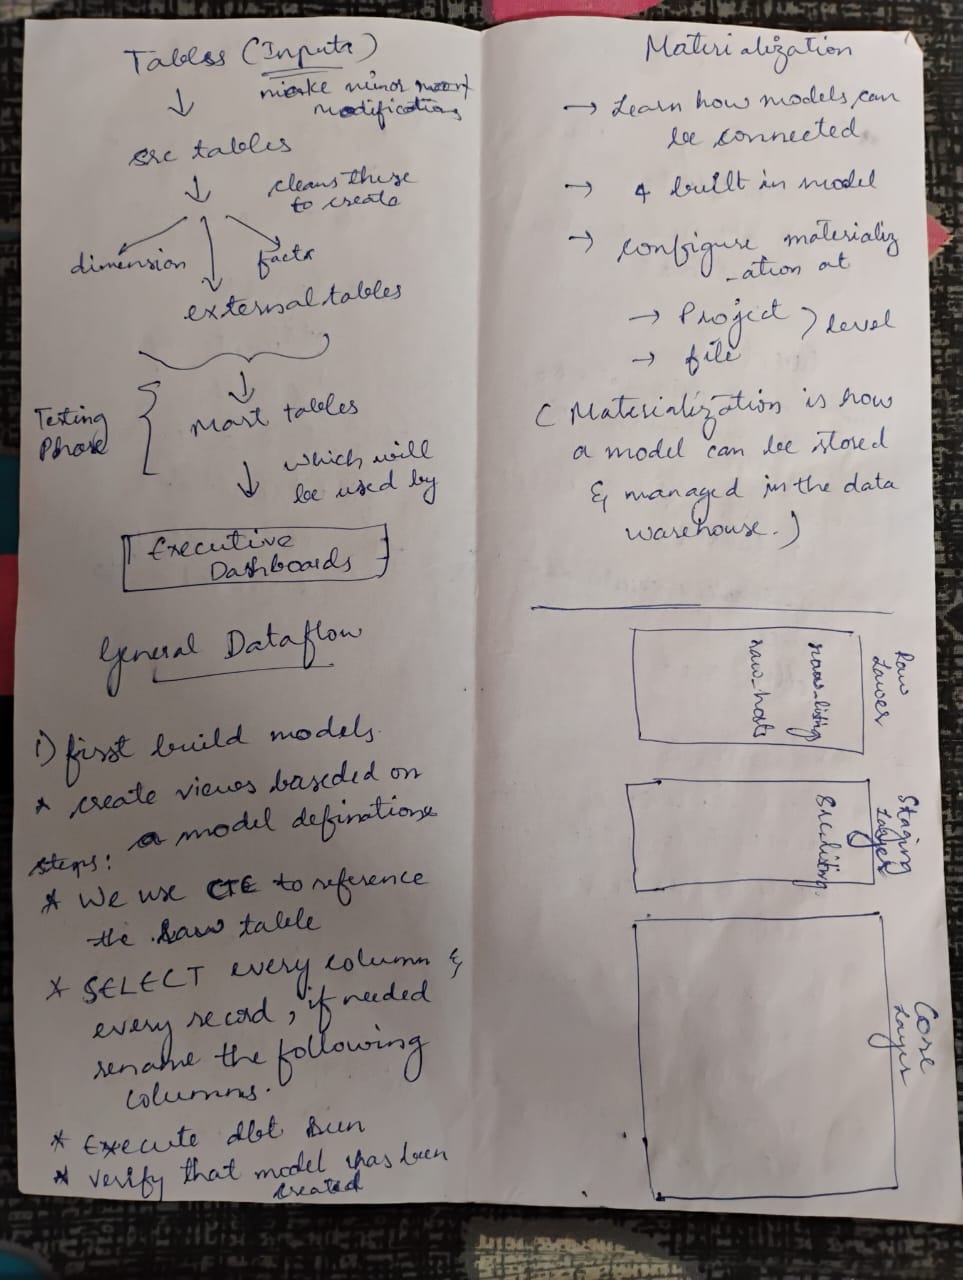 Tables (Inputs)
make minor
modifications
src tables
cleans these
to create
dimension
facts
external tables
Testing
Phase
Mart tables
which will
be used by
Executive
Dashboards
General Dataflow
i) first build models.
* create views baseded on
a model definations
steps:
* We use CTE to reference
the raw table
* SELECT every column &
every record, if needed
rename the following
columns.
* Execute dbt run
* verify that model has been
created
Materialization
→ Learn how models can
be connected
→ 4 built in model
→ configure materializ
-ation at
→ Project
→ file
level
( Materialization is how
a model can be stored
& managed in the data
warehouse.)
Raw
Layer
raw_listing
raw_hosts
Staging
Layer
src_listing.
Core
Layer